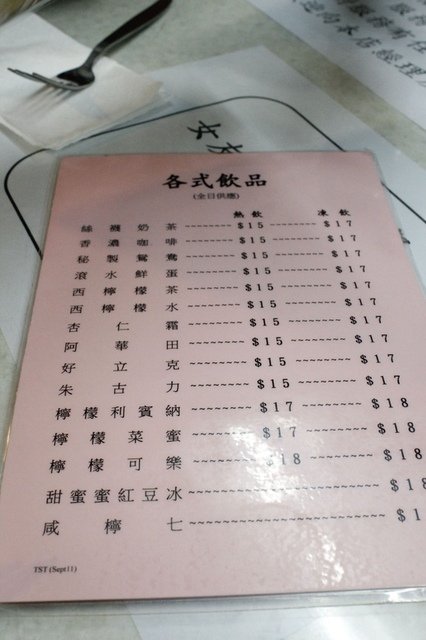 各式飲品
(全日供應)
熱飲 凍飲
絲襪奶茶 $15 $17
香濃咖啡 $15 $17
秘製鴛鴦 $15 $17
滾水鮮蛋 $15 $17
西檸檬茶 $15 $17
西檸檬水 $15 $17
杏仁霜 $15 $17
阿華田 $15 $17
好立克 $15 $17
朱古力 $15 $17
檸檬利賓納 $17 $18
檸檬菜蜜 $17 $18
檸檬可樂 $18 $18
甜蜜蜜紅豆冰 $18
咸檸七 $1
TST (Sept11)